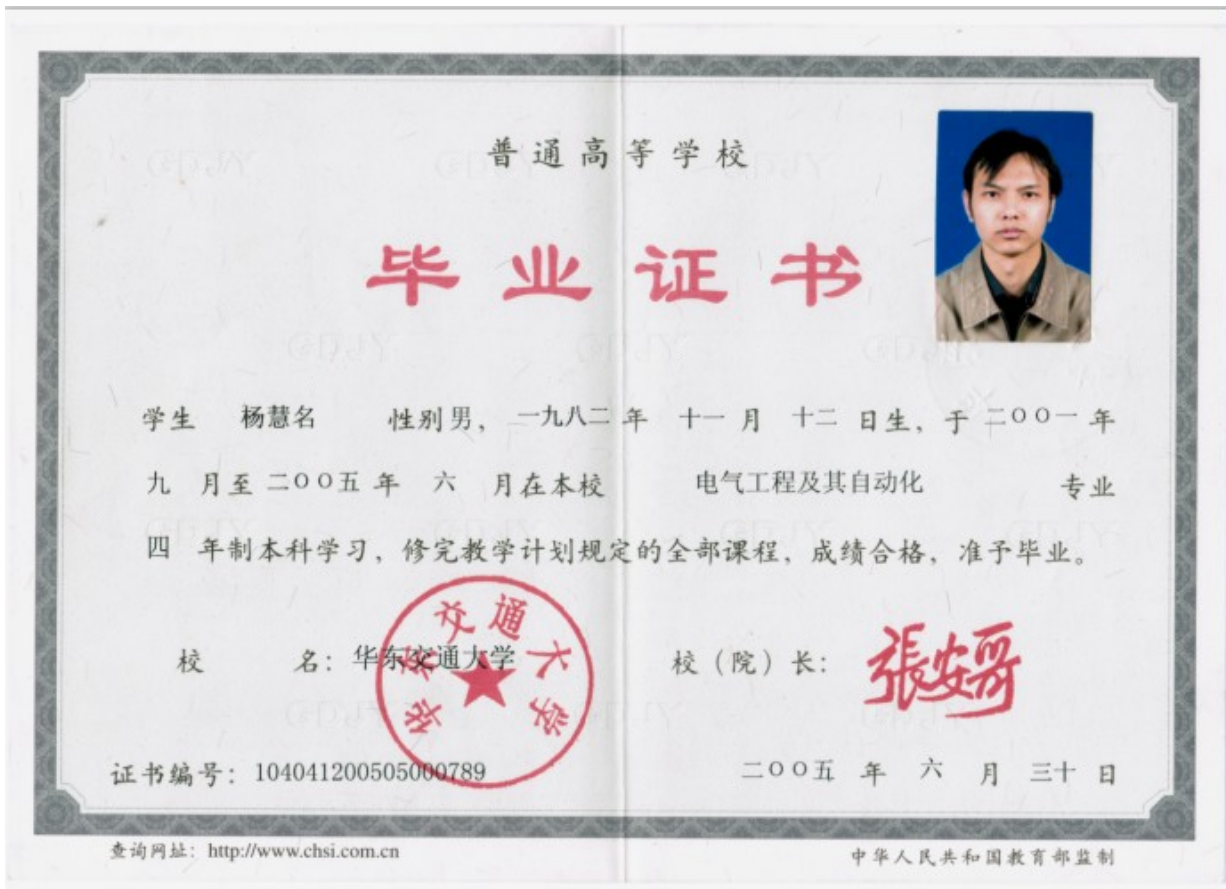 普通高等学校
毕业证书
学生 杨慧名 性别 男，一九八二 年 十一 月 十二 日生，于 二〇〇一 年
九 月至 二〇〇五 年 六 月在本校 电气工程及其自动化 专业
四 年制本科学习，修完教学计划规定的全部课程，成绩合格，准予毕业。
华东交通大学
校 名：华东交通大学 校（院）长：張安哥
证书编号：104041200505000789 二〇〇五 年 六 月 三十 日
查询网址：http://www.chsi.com.cn 中华人民共和国教育部监制